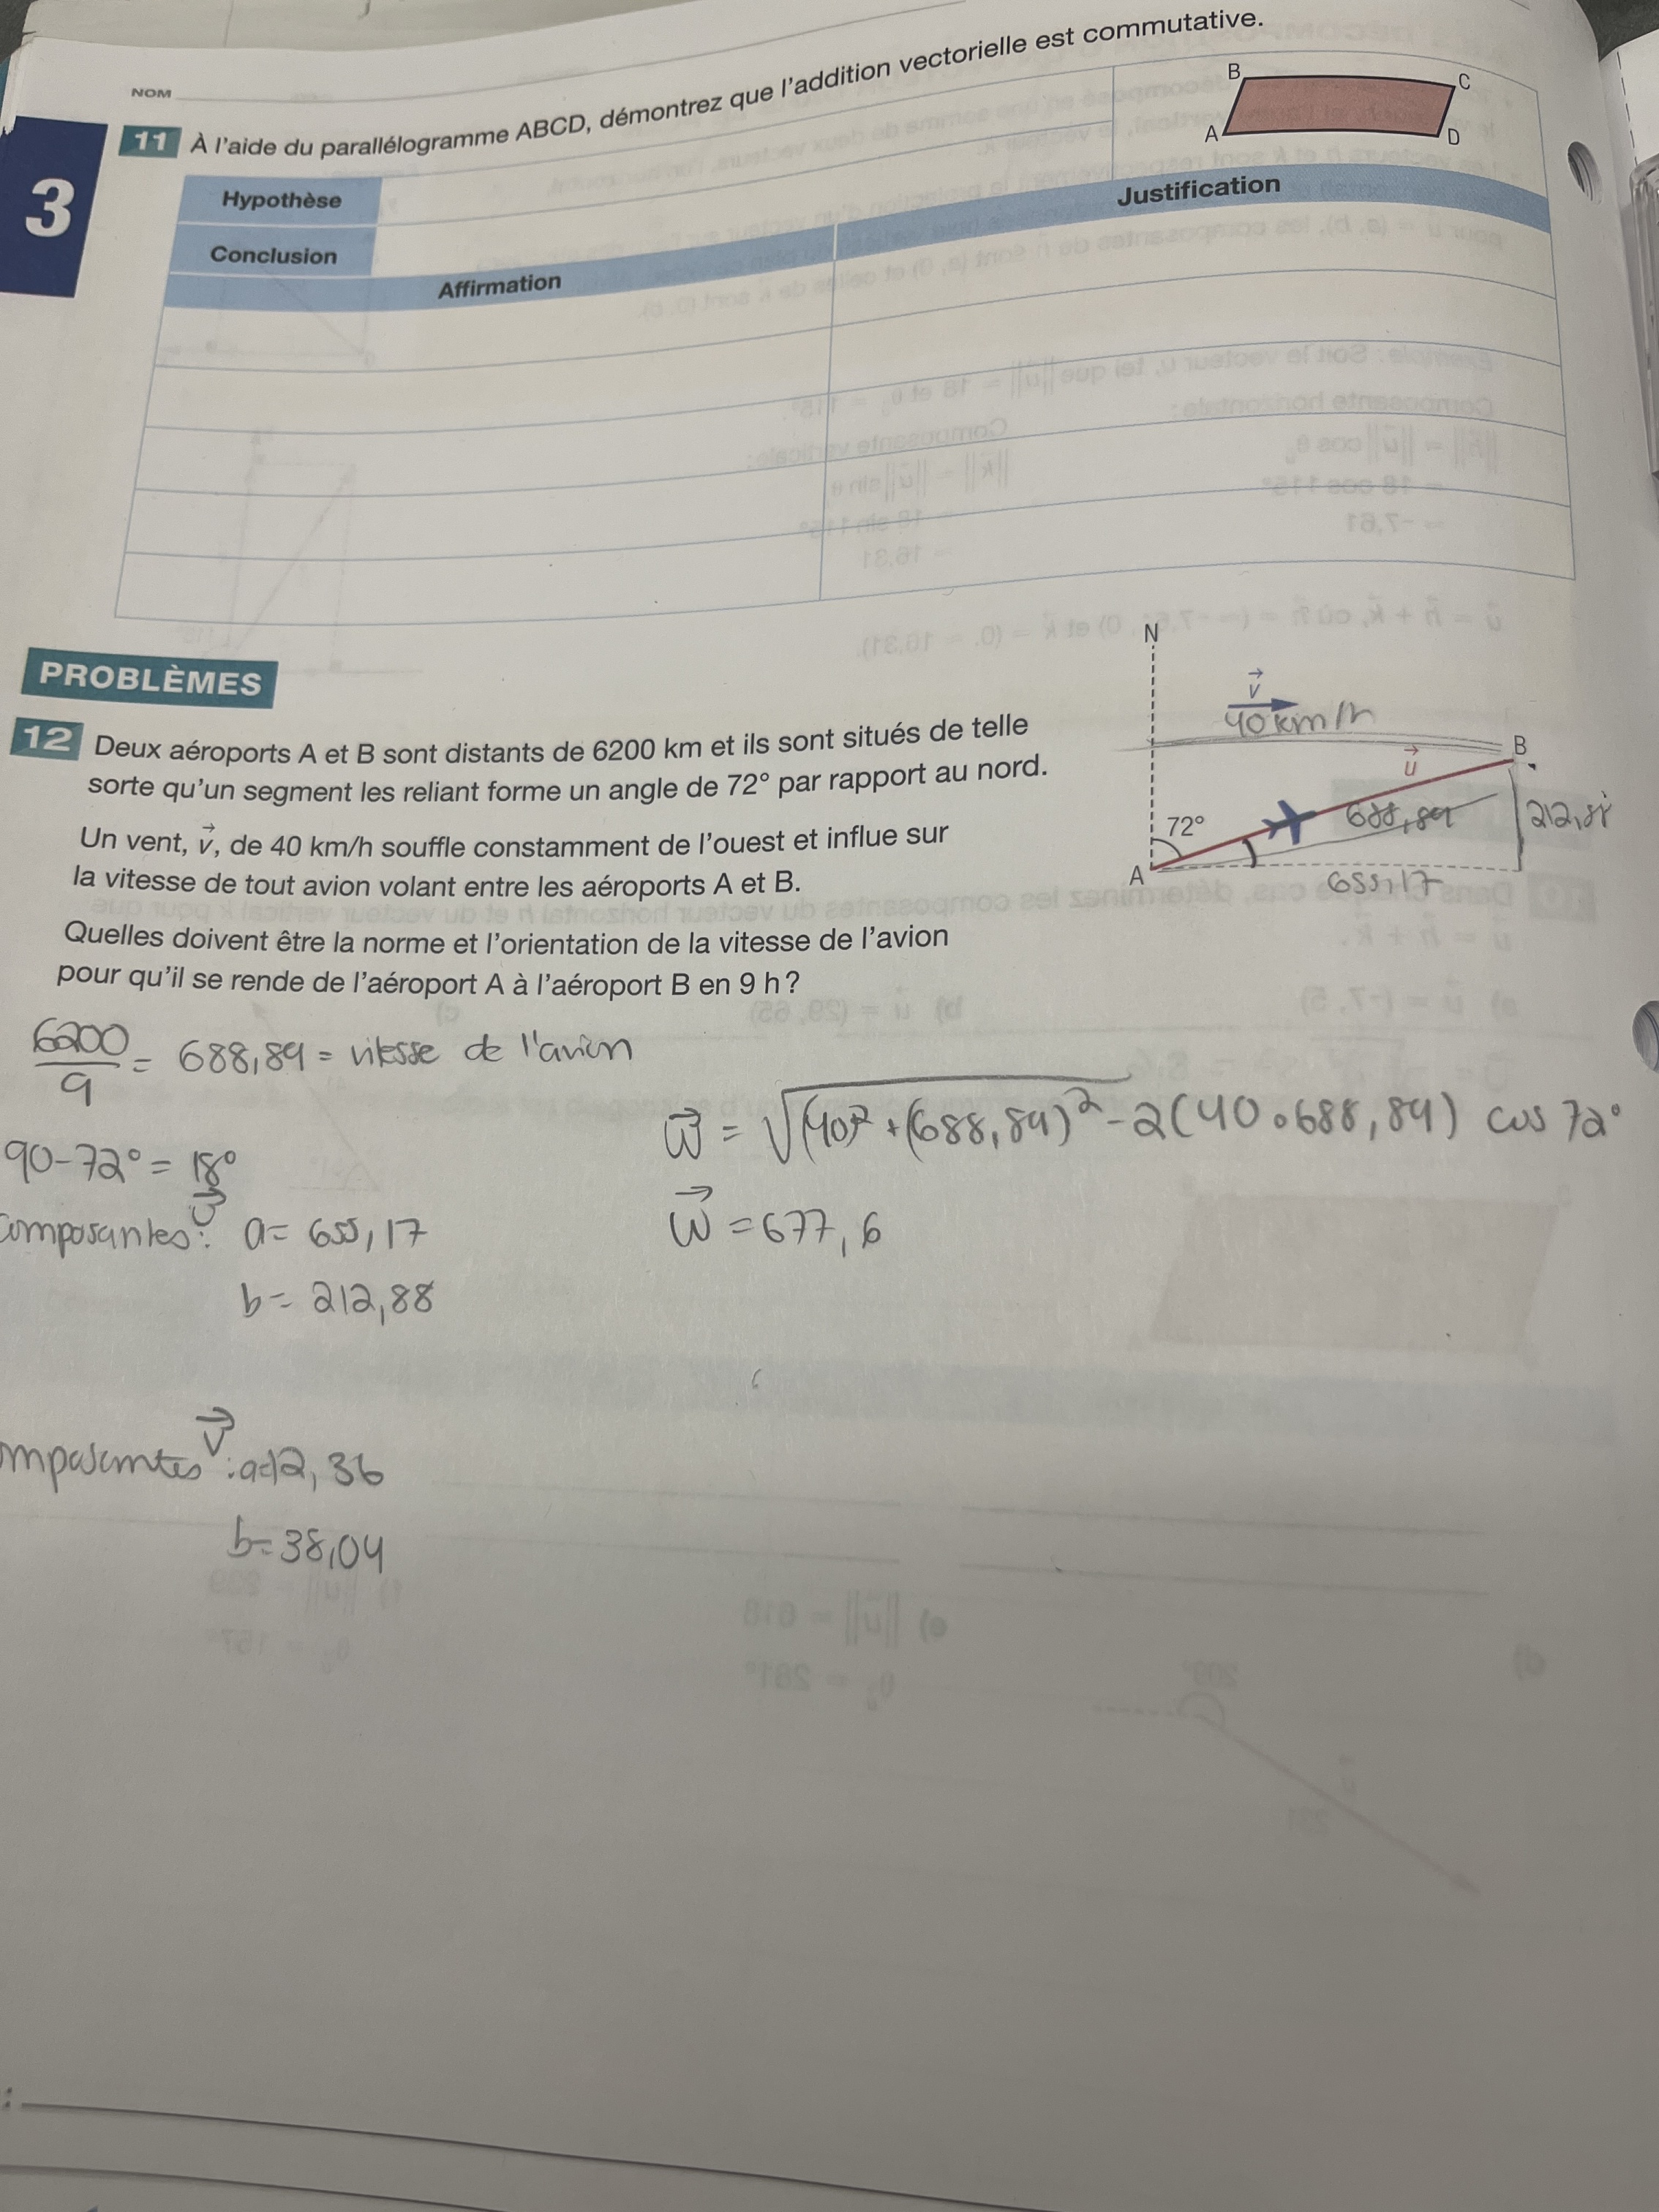 NOM
3
11 À l'aide du parallélogramme ABCD, démontrez que l'addition vectorielle est commutative.
B
C
A
D
Hypothèse
Conclusion
Affirmation
Justification
PROBLÈMES
12 Deux aéroports A et B sont distants de 6200 km et ils sont situés de telle
sorte qu'un segment les reliant forme un angle de 72° par rapport au nord.
Un vent, v⃗, de 40 km/h souffle constamment de l'ouest et influe sur
la vitesse de tout avion volant entre les aéroports A et B.
Quelles doivent être la norme et l'orientation de la vitesse de l'avion
pour qu'il se rende de l'aéroport A à l'aéroport B en 9 h?
N
v⃗
40 km/h
B
u⃗
72°
688,89
212,88
A
655,17
6200/9 = 688,89 = vitesse de l'avion
90-72° = 18°
composantes u⃗: a= 655,17
b= 212,88
w⃗ = √(40)² + (688,89)² - 2(40•688,89) cos 72°
w⃗ = 677,6
omposantes v⃗: a=12,36
b= 38,04